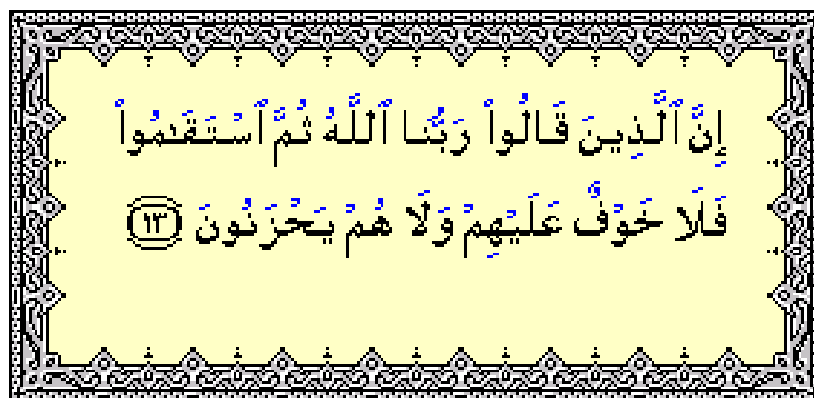 إِنَّ ٱلَّذِينَ قَالُوا۟ رَبُّنَا ٱللَّهُ ثُمَّ ٱسْتَقَٰمُوا۟
فَلَا خَوْفٌ عَلَيْهِمْ وَلَا هُمْ يَحْزَنُونَ ١٣